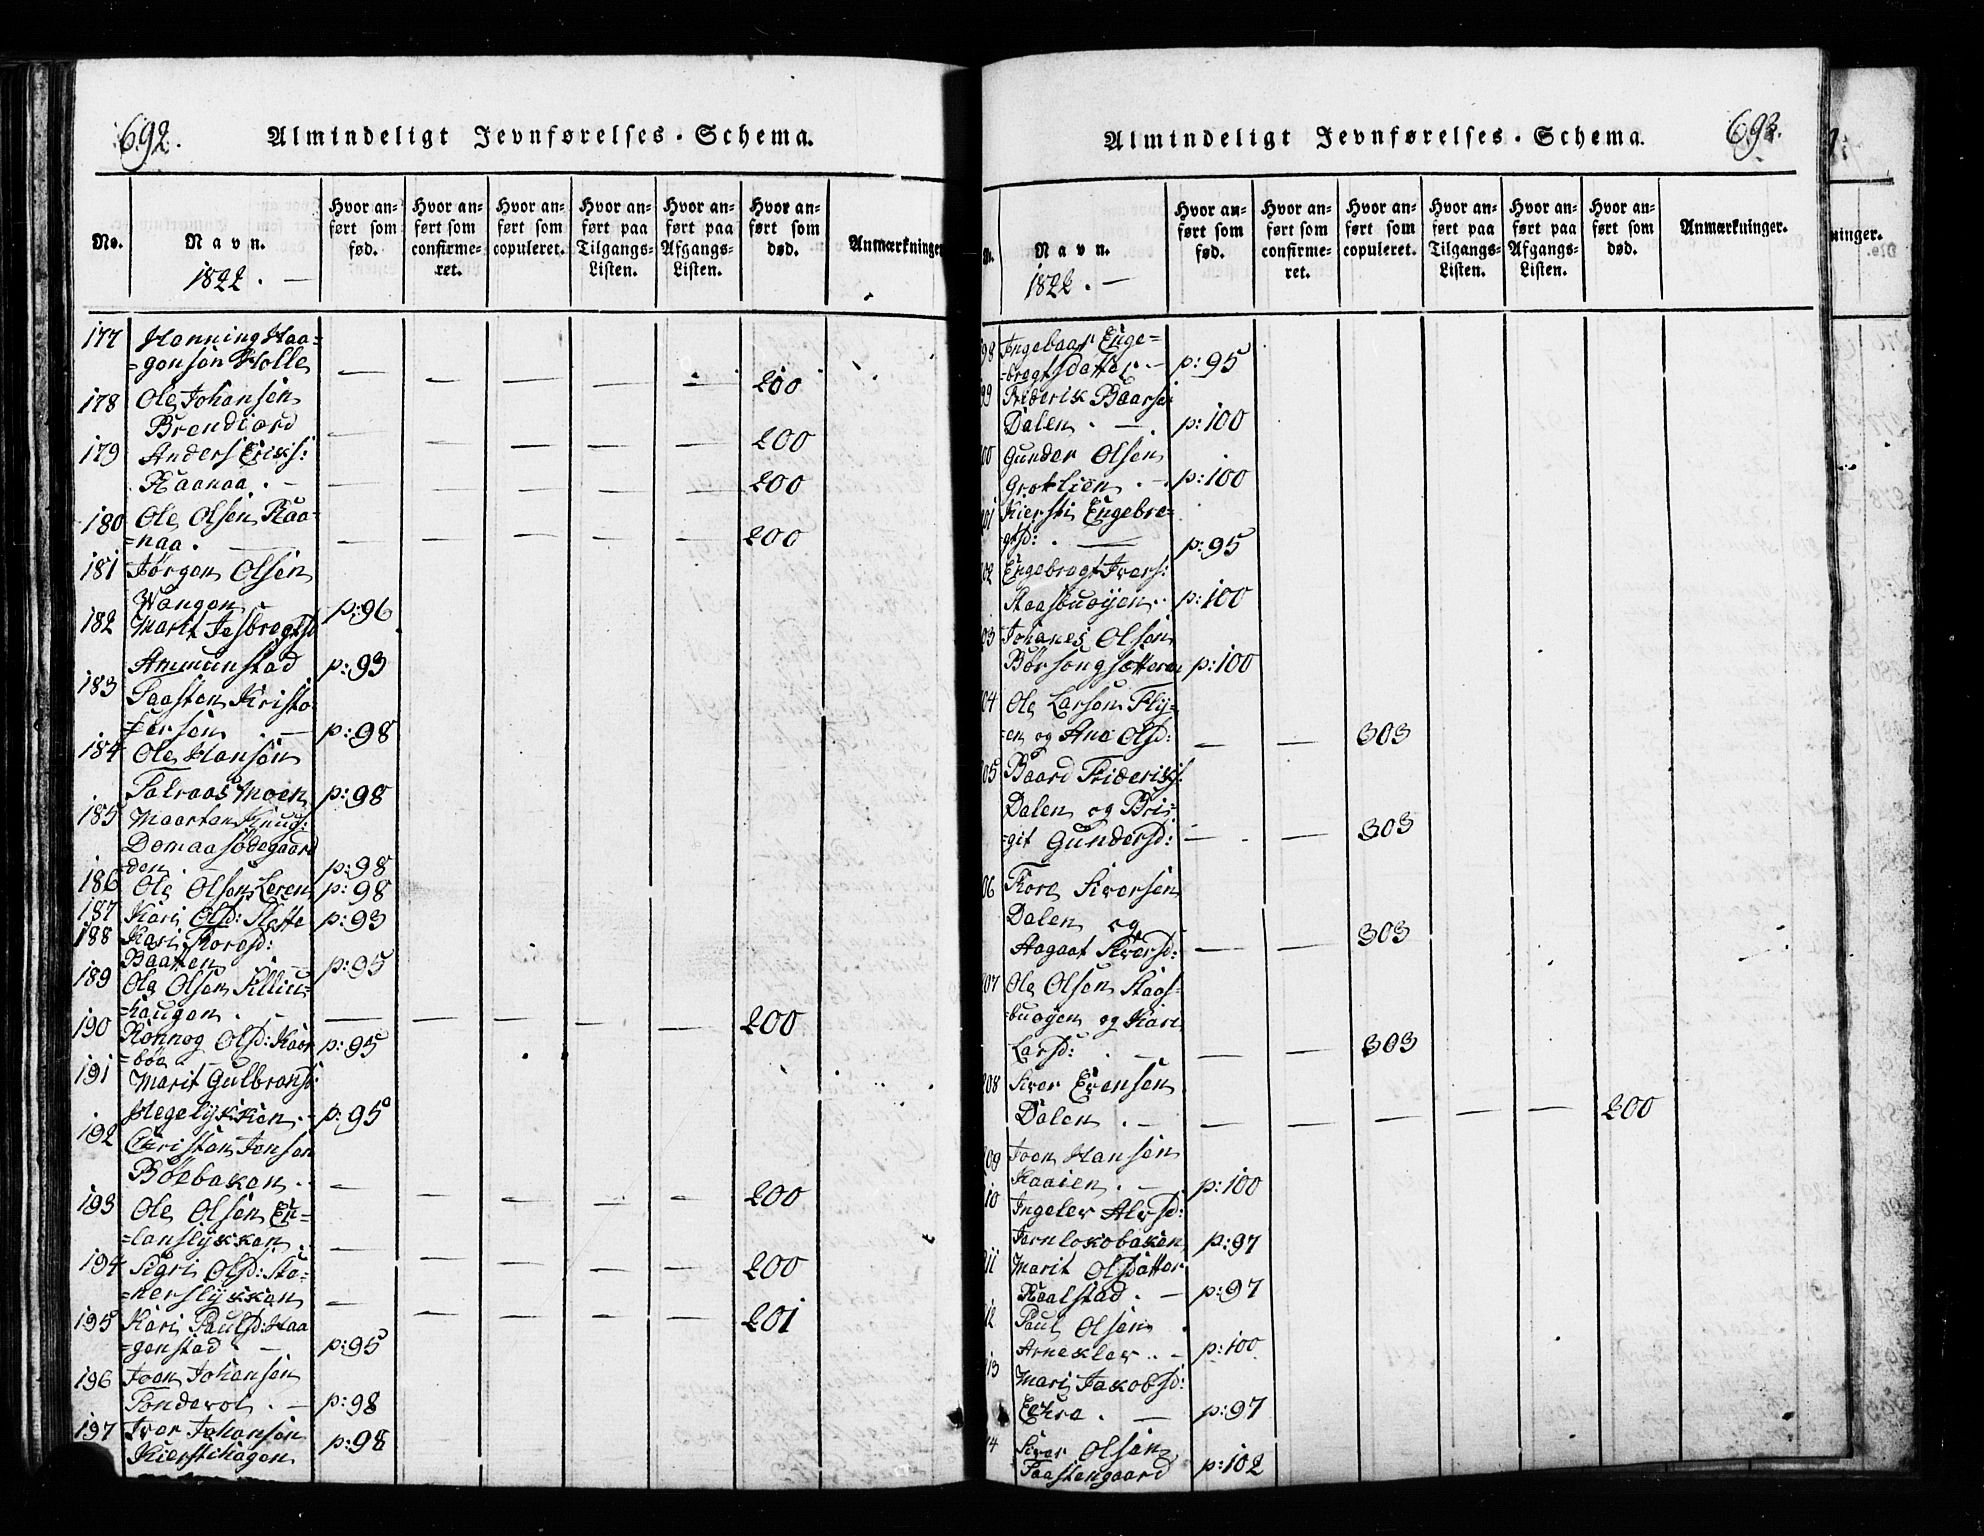 692.
Almindeligt Jevnførelses-Schema.
No.
Navn.
1822. —
Hvor an-
ført som
fød.
Hvor an-
ført som
confirme-
ret.
Hvor an-
ført som
copuleret.
Hvor an-
ført paa
Tilgangs-
Listen.
Hvor an-
ført paa
Afgangs-
Listen.
Hvor an-
ført som
død.
Anmærkninger
177 Henning Haa=
=gensen Holle — — — — — 200
178 Ole Johansen
Brendiord — — — — — 200
179 Anders Eriks:
Raanaa. — — — — — — 200
180 Ole Olsen Raa=
=naa. — — — — — 200
181 Jørgen Olsen
Wangen p:96
182 Marit Jesbregtsd
Ammunstad p:93
183 Paasten Kristo=
=fersen . — p:98
184 Ole Hansen
Talraas Moen p:98
185 Maarten Knuds:
Domaasødegaard
=den p:98
186 Ole Olsen Leren p:98
187 Kari Olsd: Slette p:93
188 Kari Toresd:
Baatten p:95
189 Ole Olsen Silliu=
=haugen. — — — — — 200
190 Rønnog Olsd: Kaar
=bøa p:95
191 Marit Gulbransd:
Hegelykken. — p:95
192 Christen Jensen
Böebaken . — — — — — 200
193 Ole Olsen En=
=lanslykken. — — — — — 200
194 Sigri Olsd: Sta=
=nerslykken — — — — — 201
195 Kari Paulsd: Haa
=genstad — p:95
196 Joen Johansen
Tonderoi. — p:98
197 Iver Johansen
Kierstihagen p:98
693.
Almindeligt Jevnførelses-Schema.
Navn.
1822. —
Hvor an-
ført som
fød.
Hvor an-
ført som
confirme-
ret.
Hvor an-
ført som
copuleret.
Hvor an-
ført paa
Tilgangs-
Listen.
Hvor an-
ført paa
Afgangs-
Listen.
Hvor an-
ført som
død.
Anmærkninger.
98 Ingebaar Enge=
=bregtsdatter — p:95
99 Friderik Baarse
Dalen . — . p:100
00 Gunder Olsen
Grotlien . — p:100
01 Kiersti Engebre=
gtsd: . — p:95
02 Engebregt Ivers:
Staasbuøyen . p:100
03 Johanes Olsen
Börsengsætteren p:100
04 Ole Larsen Fly=
=en og Ane Olsd: — — 303
05 Baard Frideriks:
Dalen og Bri=
=git Gundersd: — — 303
06 Tore Siversen
Dalen og
Aagaat Siversd: — — 303
207 Ole Olsen Staas=
buøyen og Kari
Larsd: . — — — 303
208 Siver Evensen
Dalen . — — — — — — 200
209 Joen Hansen
Kaaien. — p:100
10 Ingeler Alvsd:
Jernlokobaken p:97
11 Marit Olsdatter
Raalstad. — p:97
12 Paul Olsen
Arnekler . . — p:100
13 Mari Jakobsd:
Echre . — p:97
14 Siver Olsen
Paastengaard p:102
ninger.